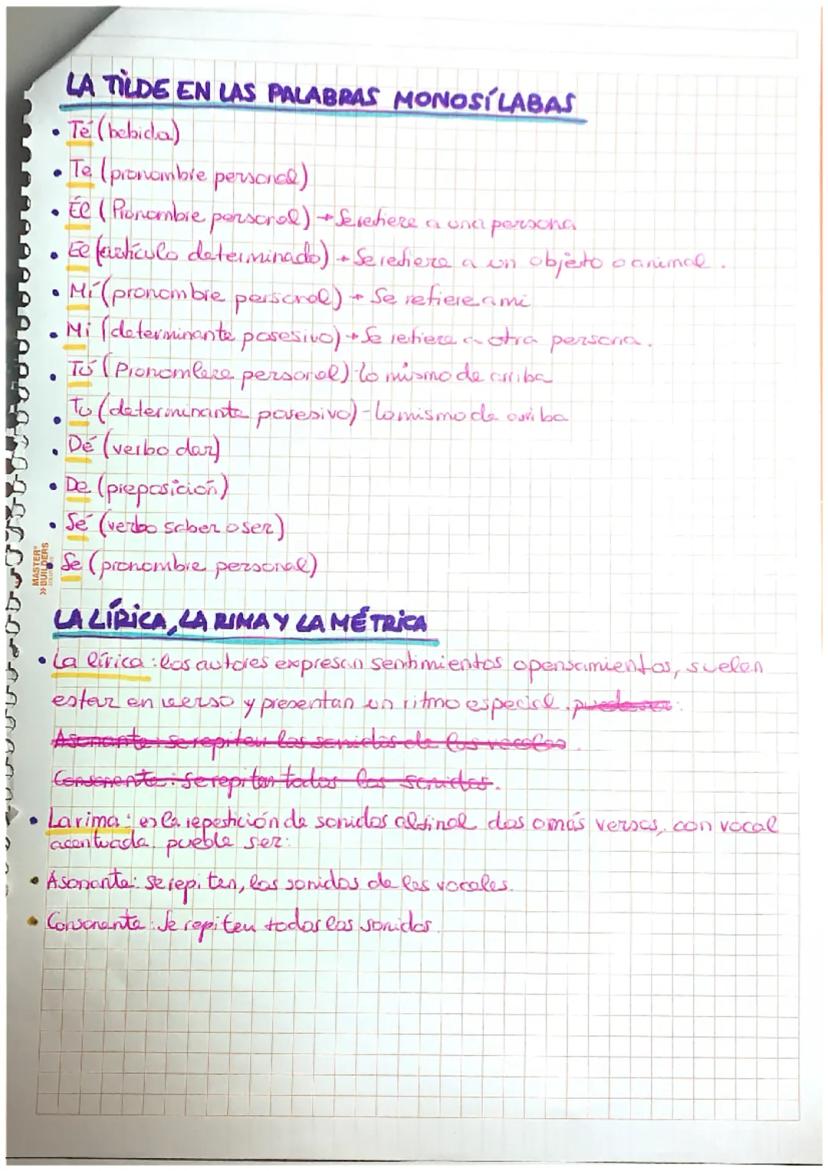 LA TILDE EN LAS PALABRAS MONOSÍLABAS
• Té (bebida)
• Te (pronombre personal)
• Él (Pronombre personal) → Se refiere a una persona
• El (artículo determinado) → Se refiere a un objeto o animal.
• Mí (pronombre personal) → Se refiere a mi
• Mi (determinante posesivo) → Se refiere a otra persona.
• Tú (Pronombre personal) - lo mismo de arriba
• Tu (determinante posesivo) - lo mismo de arriba
• Dé (verbo dar)
• De (preposición)
• Sé (verbo saber o ser)
• Se (pronombre personal)
MASTER®
»BUILDERS
LA LÍRICA, LA RIMA Y LA MÉTRICA
• La lírica: los autores expresan sentimientos o pensamientos, suelen
estar en verso y presentan un ritmo especial. puede ser:
Asonante: se repiten los sonidos de las vocales.
Consonante: Se repiten todos los sonidos.
• La rima: es la repetición de sonidos al final dos o más versos, con vocal
acentuada. pueble ser:
• Asonante: se repiten, los sonidos de las vocales.
• Consonante: Se repiten todos los sonidos.